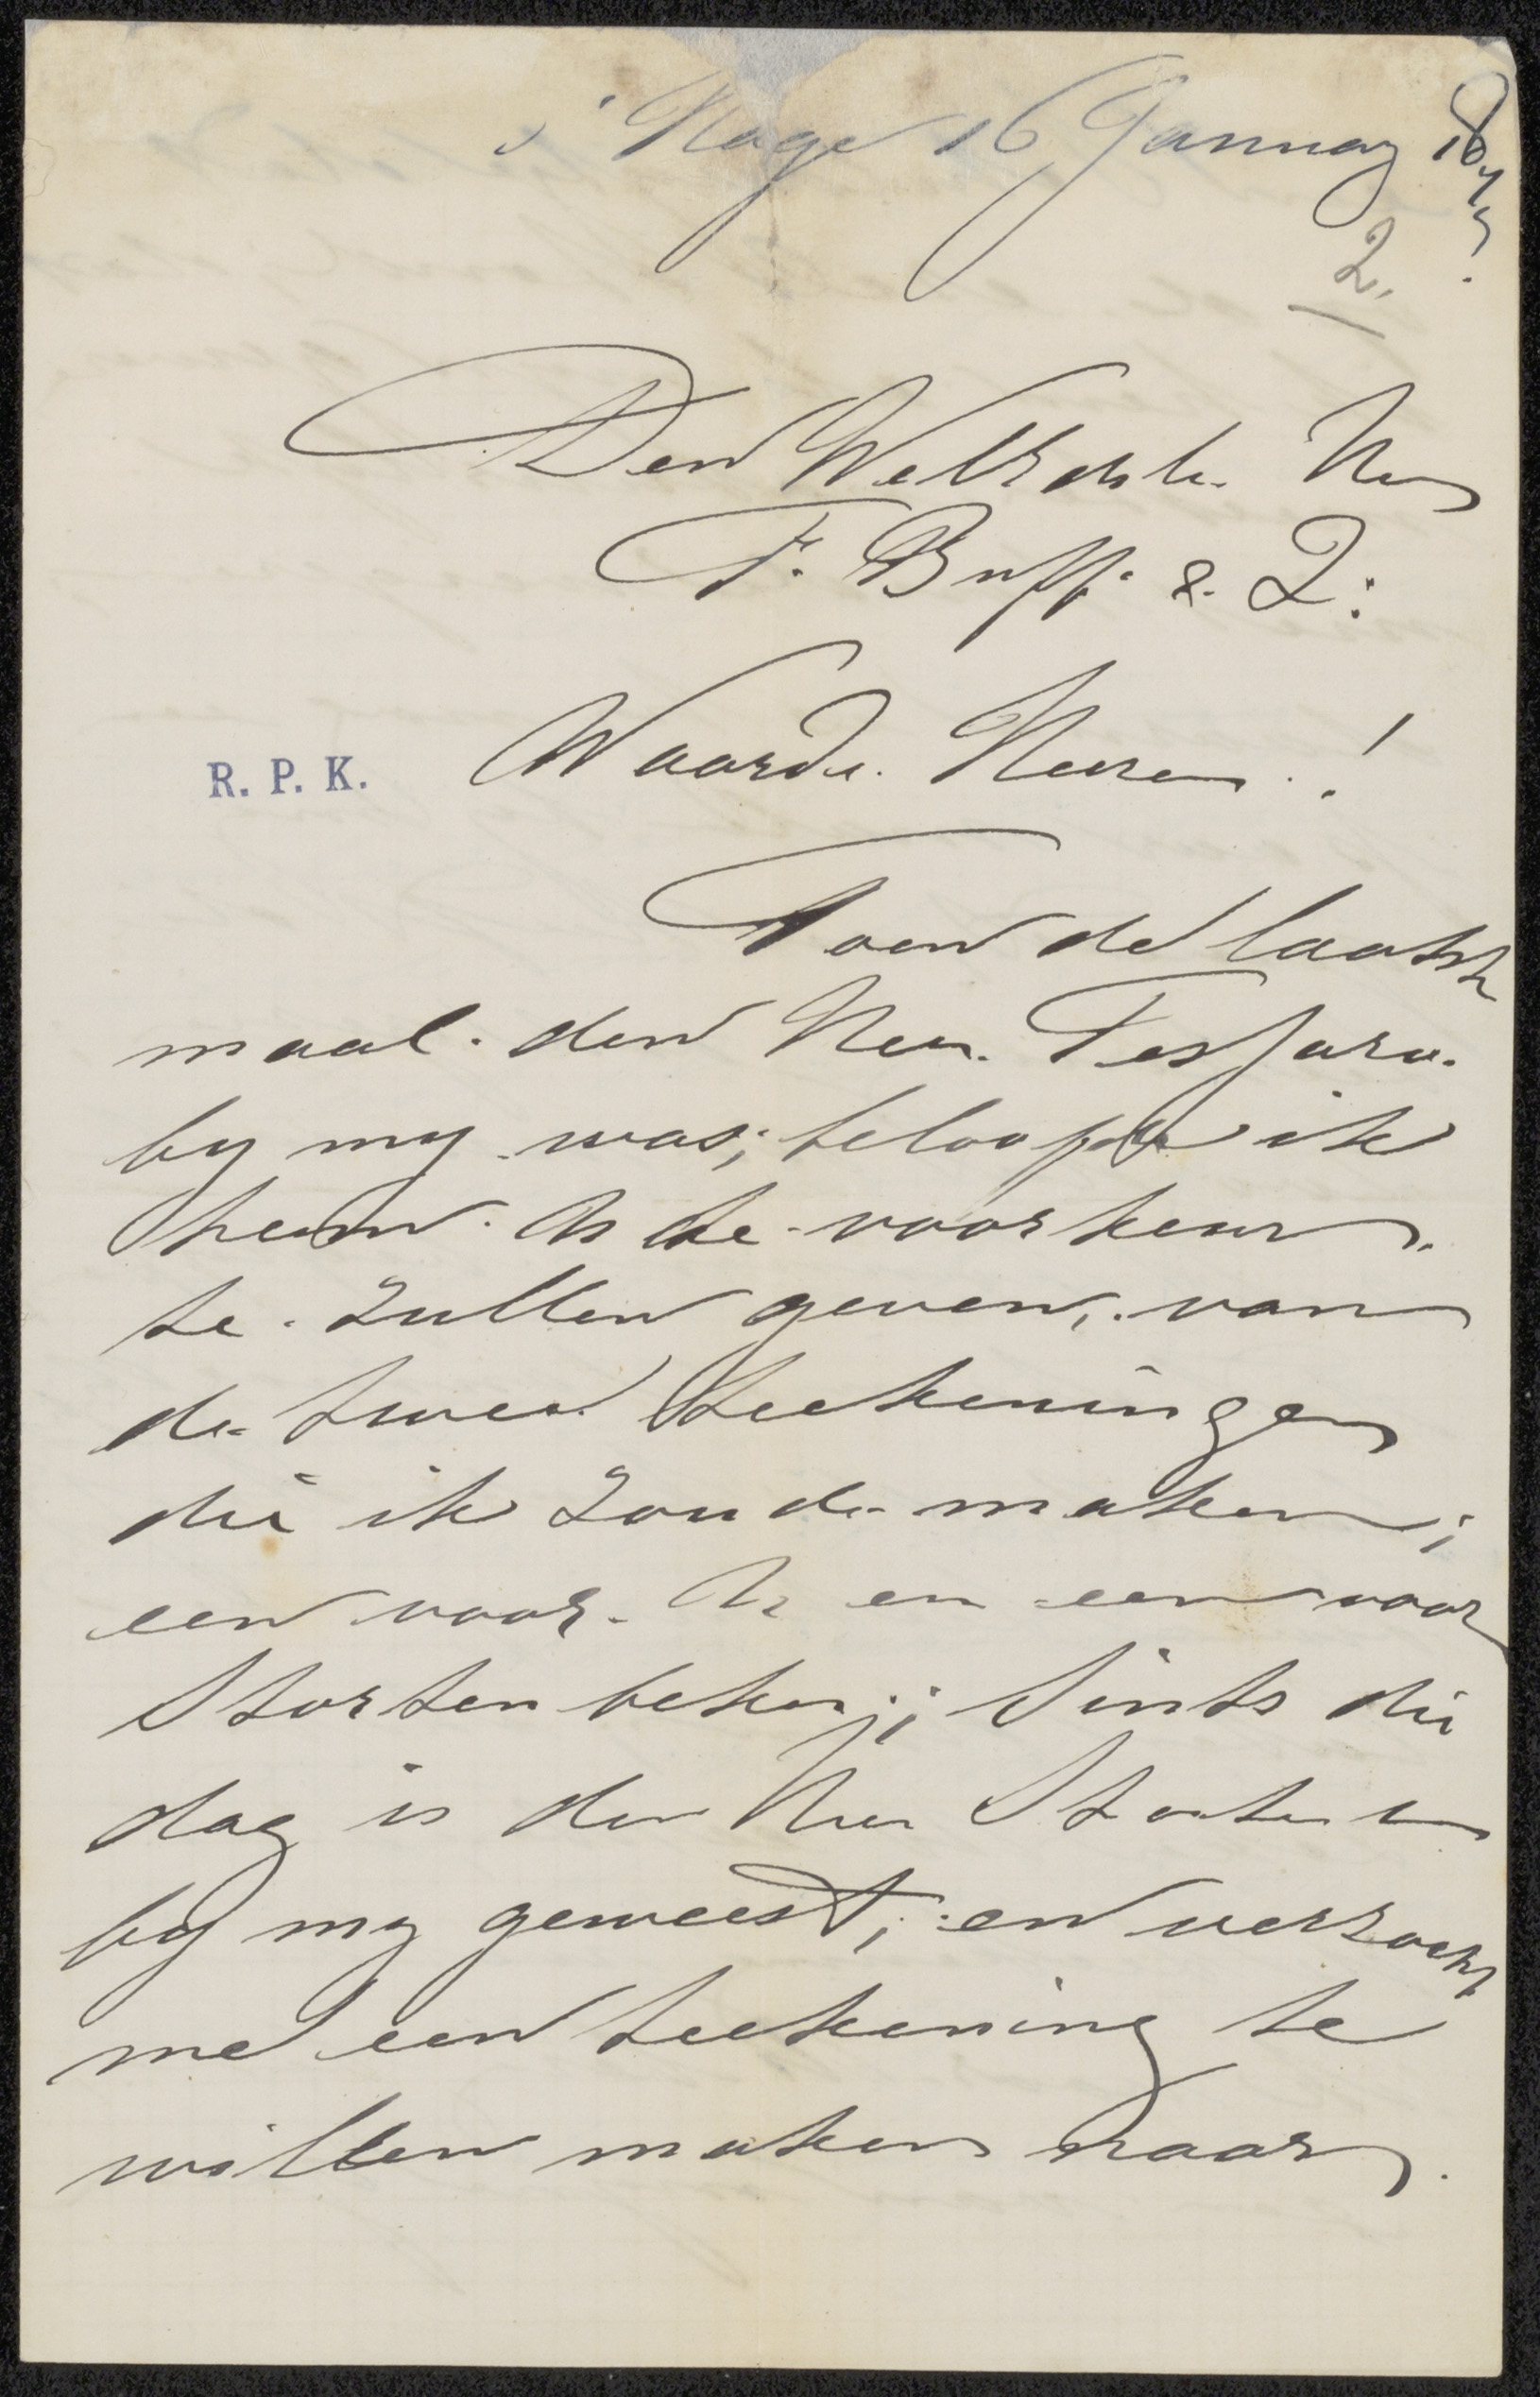 s' Hage 16 January 1877.
2.
Den WelEdele Heer
F. Buffa & Z:
R. P. K.
Waarde Heeren!
Toen de laatste
maal den Heer Tessaro
by my was, beloofde ik
hem de voorkeur
te zullen geven, van
de twee teekeningen
die ik zoude maken;
een voor en een voor
Stortenbeker; sints die
dag is den Heer
by my geweest, en verzocht
me een teekening te
willen maken naar